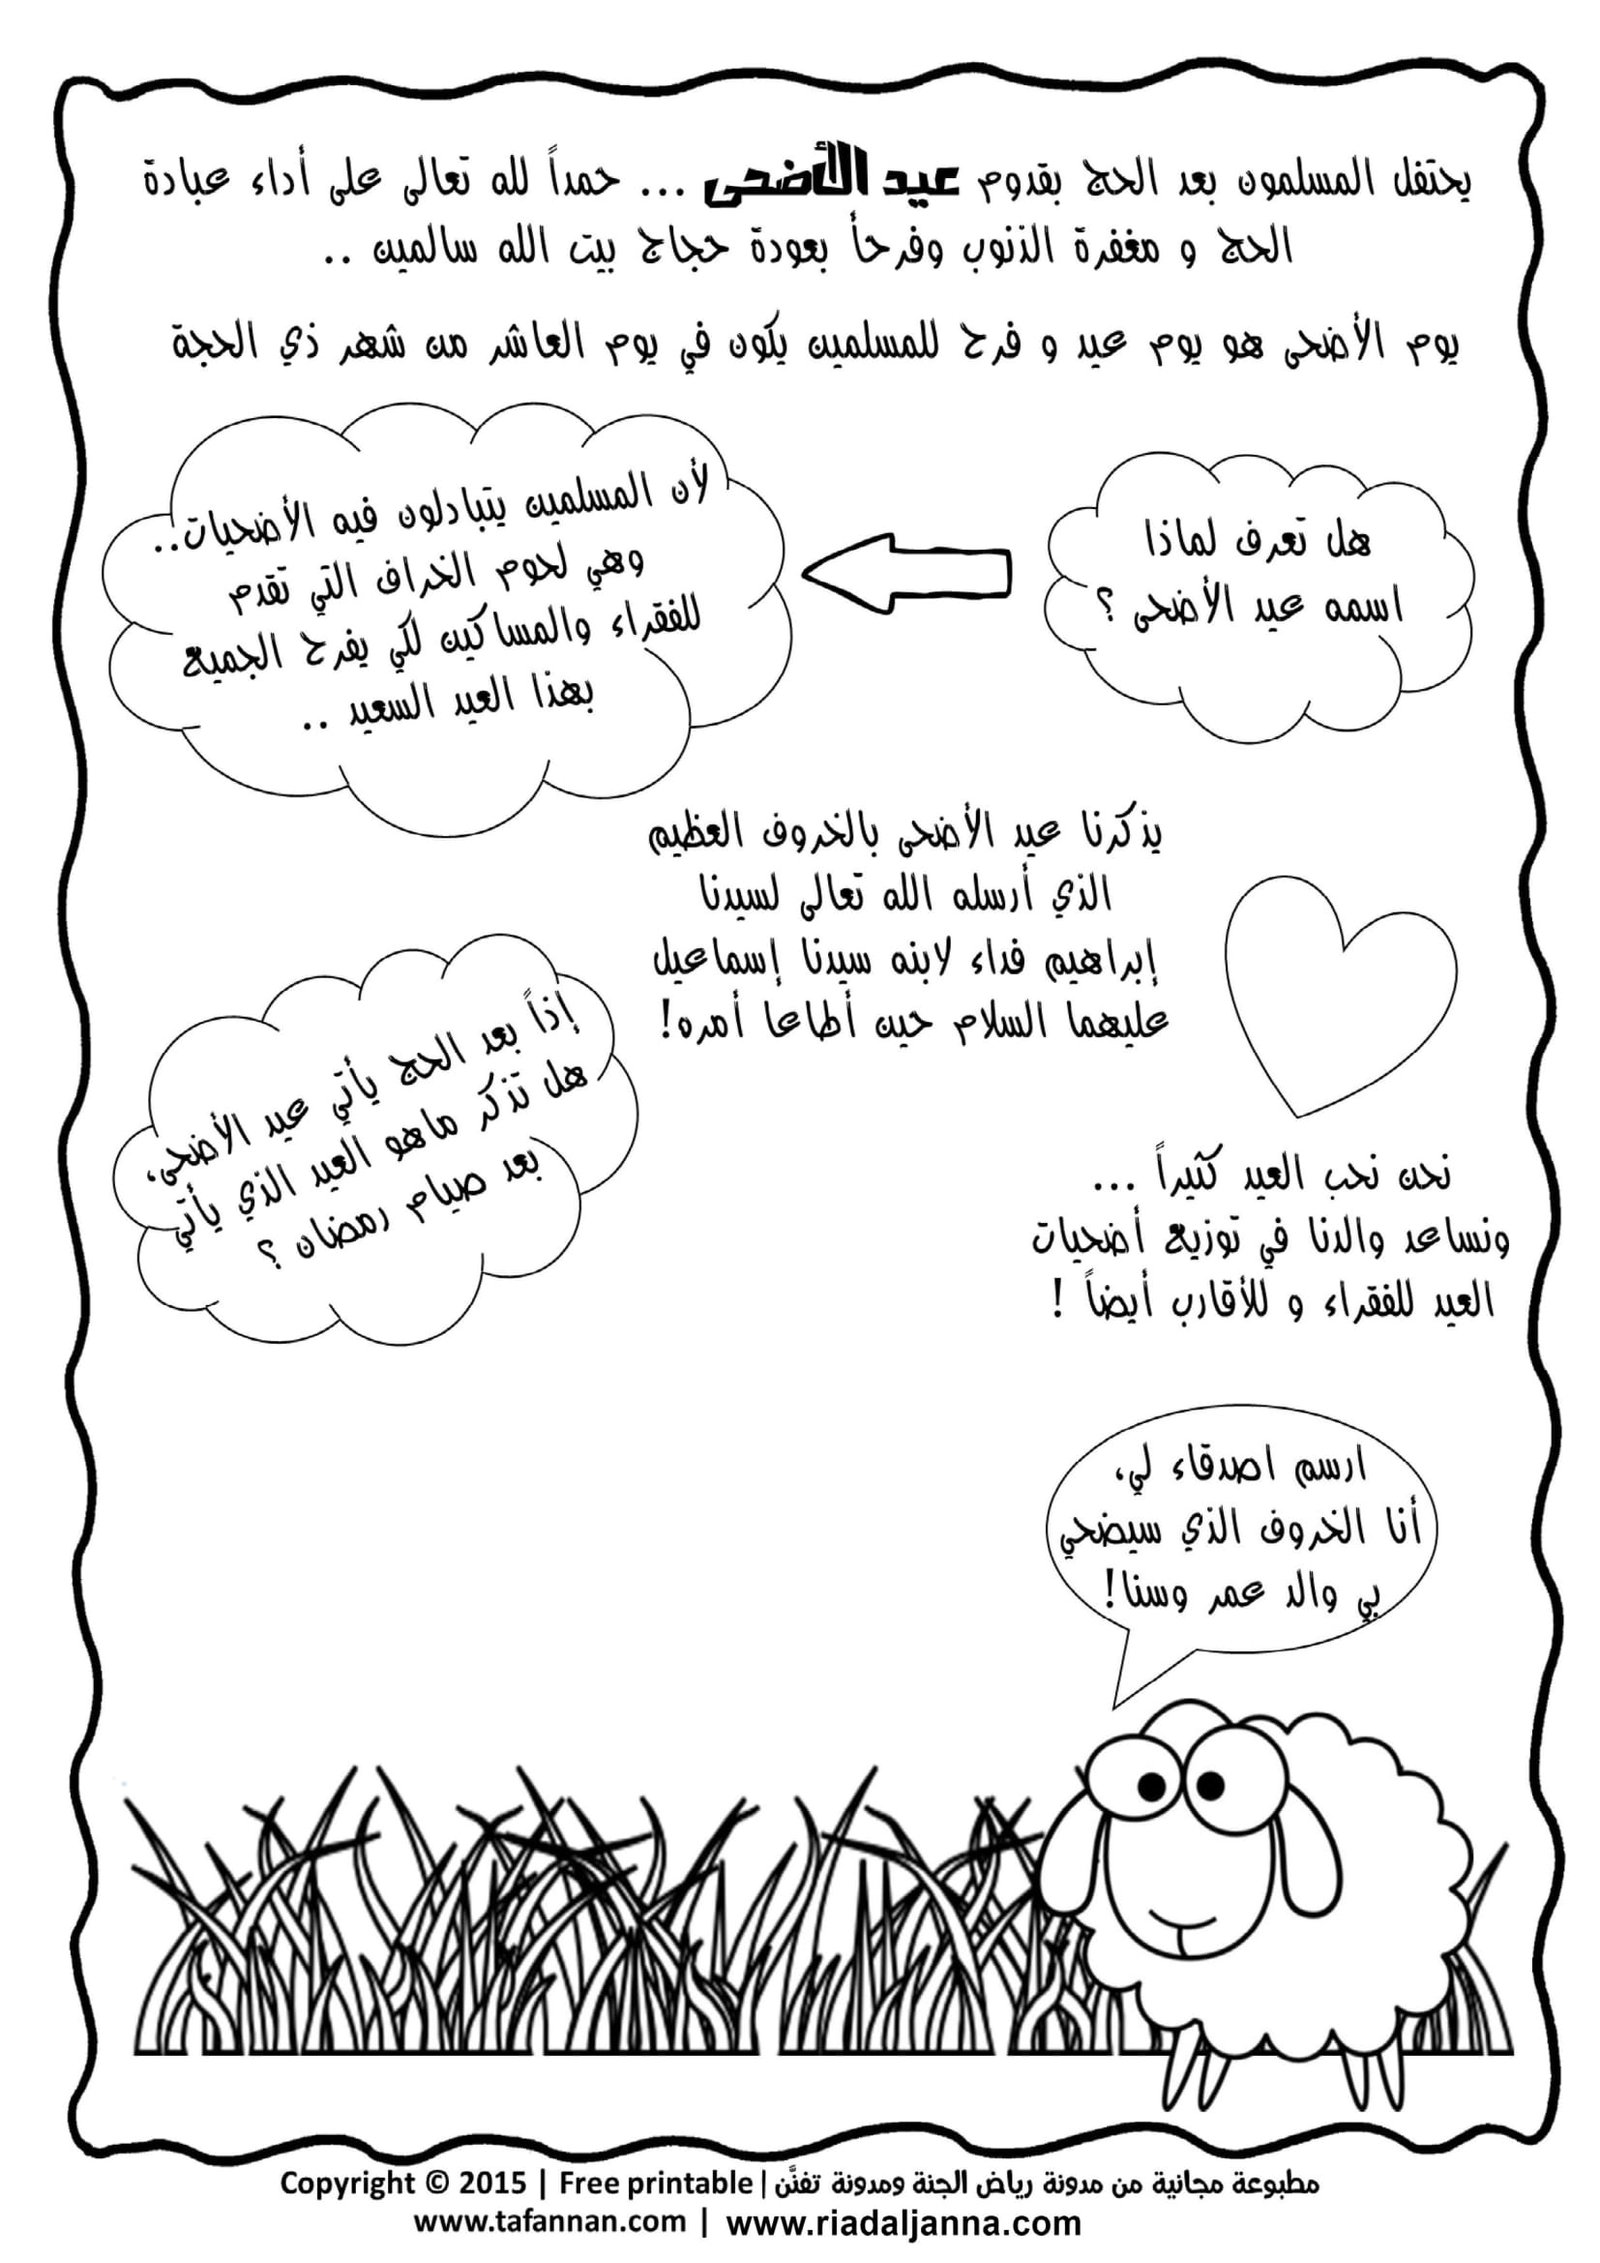 يحتفل المسلمون بعد الحج بقدوم عيد الأضحى ... حمداً لله تعالى على أداء عبادة
الحج و مغفرة الذنوب وفرحأ بعودة حجاج بيت الله سالمين ..
يوم الأضحى هو يوم عيد و فرح للمسلمين يكون في يوم العاشر من شهر ذي الحجة
هل تعرف لماذا
اسمه عيد الأضحى ؟
لأن المسلمين يتبادلون فيه الأضحيات..
وهي لحوم الخراف التي تقدم
للفقراء والمساكين لكي يفرح الجميع
بهذا العيد السعيد ..
يذكرنا عيد الأضحى بالخروف العظيم
الذي أرسله الله تعالى لسيدنا
إبراهيم فداء لابنه سيدنا إسماعيل
عليهما السلام حين أطاعا أمره!
إذاً بعد الحج يأتي عيد الأضحى،
هل تذكر ماهو العيد الذي يأتي
بعد صيام رمضان ؟
نحن نحب العيد كثيراً ...
ونساعد والدنا في توزيع أضحيات
العيد للفقراء و للأقارب أيضاً !
ارسم اصدقاء لي،
أنا الخروف الذي سيضحي
بي والد عمر وسنا!
Copyright © 2015 | Free printable | مطبوعة مجانية من مدونة رياض الجنة ومدونة تفنَّن
www.tafannan.com | www.riadaljanna.com